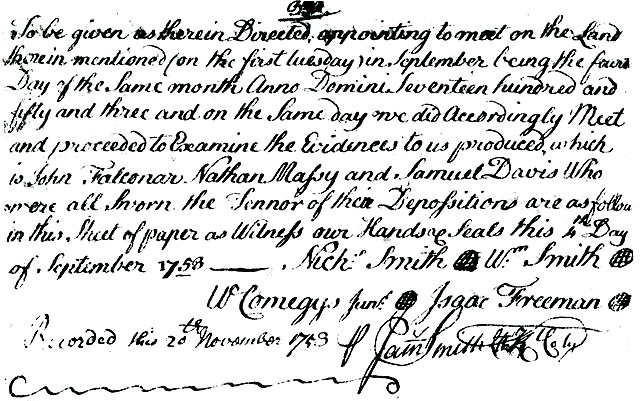 To be given as therein Directed, appointing to meet on the Land
therein mentioned (on the first tuesday) in September being the fourth
Day of the Same month Anno Domini Seventeen hundred and
fifty and three and on the Same day we did Acordingly Meet
and proceeded to Examine the Evidences to us produced, which
is John Falconar Nathan Massy and Samuel Davis Who
were all Sworn the Tennor of their Depossitions are as follow
in this Sheet of paper as Witness our Hands & Seals this 4th Day
of September 1753 Nichs Smith Wm Smith
W Comegys Junr Isaac Freeman
Recorded this 20th November 1753 Smith